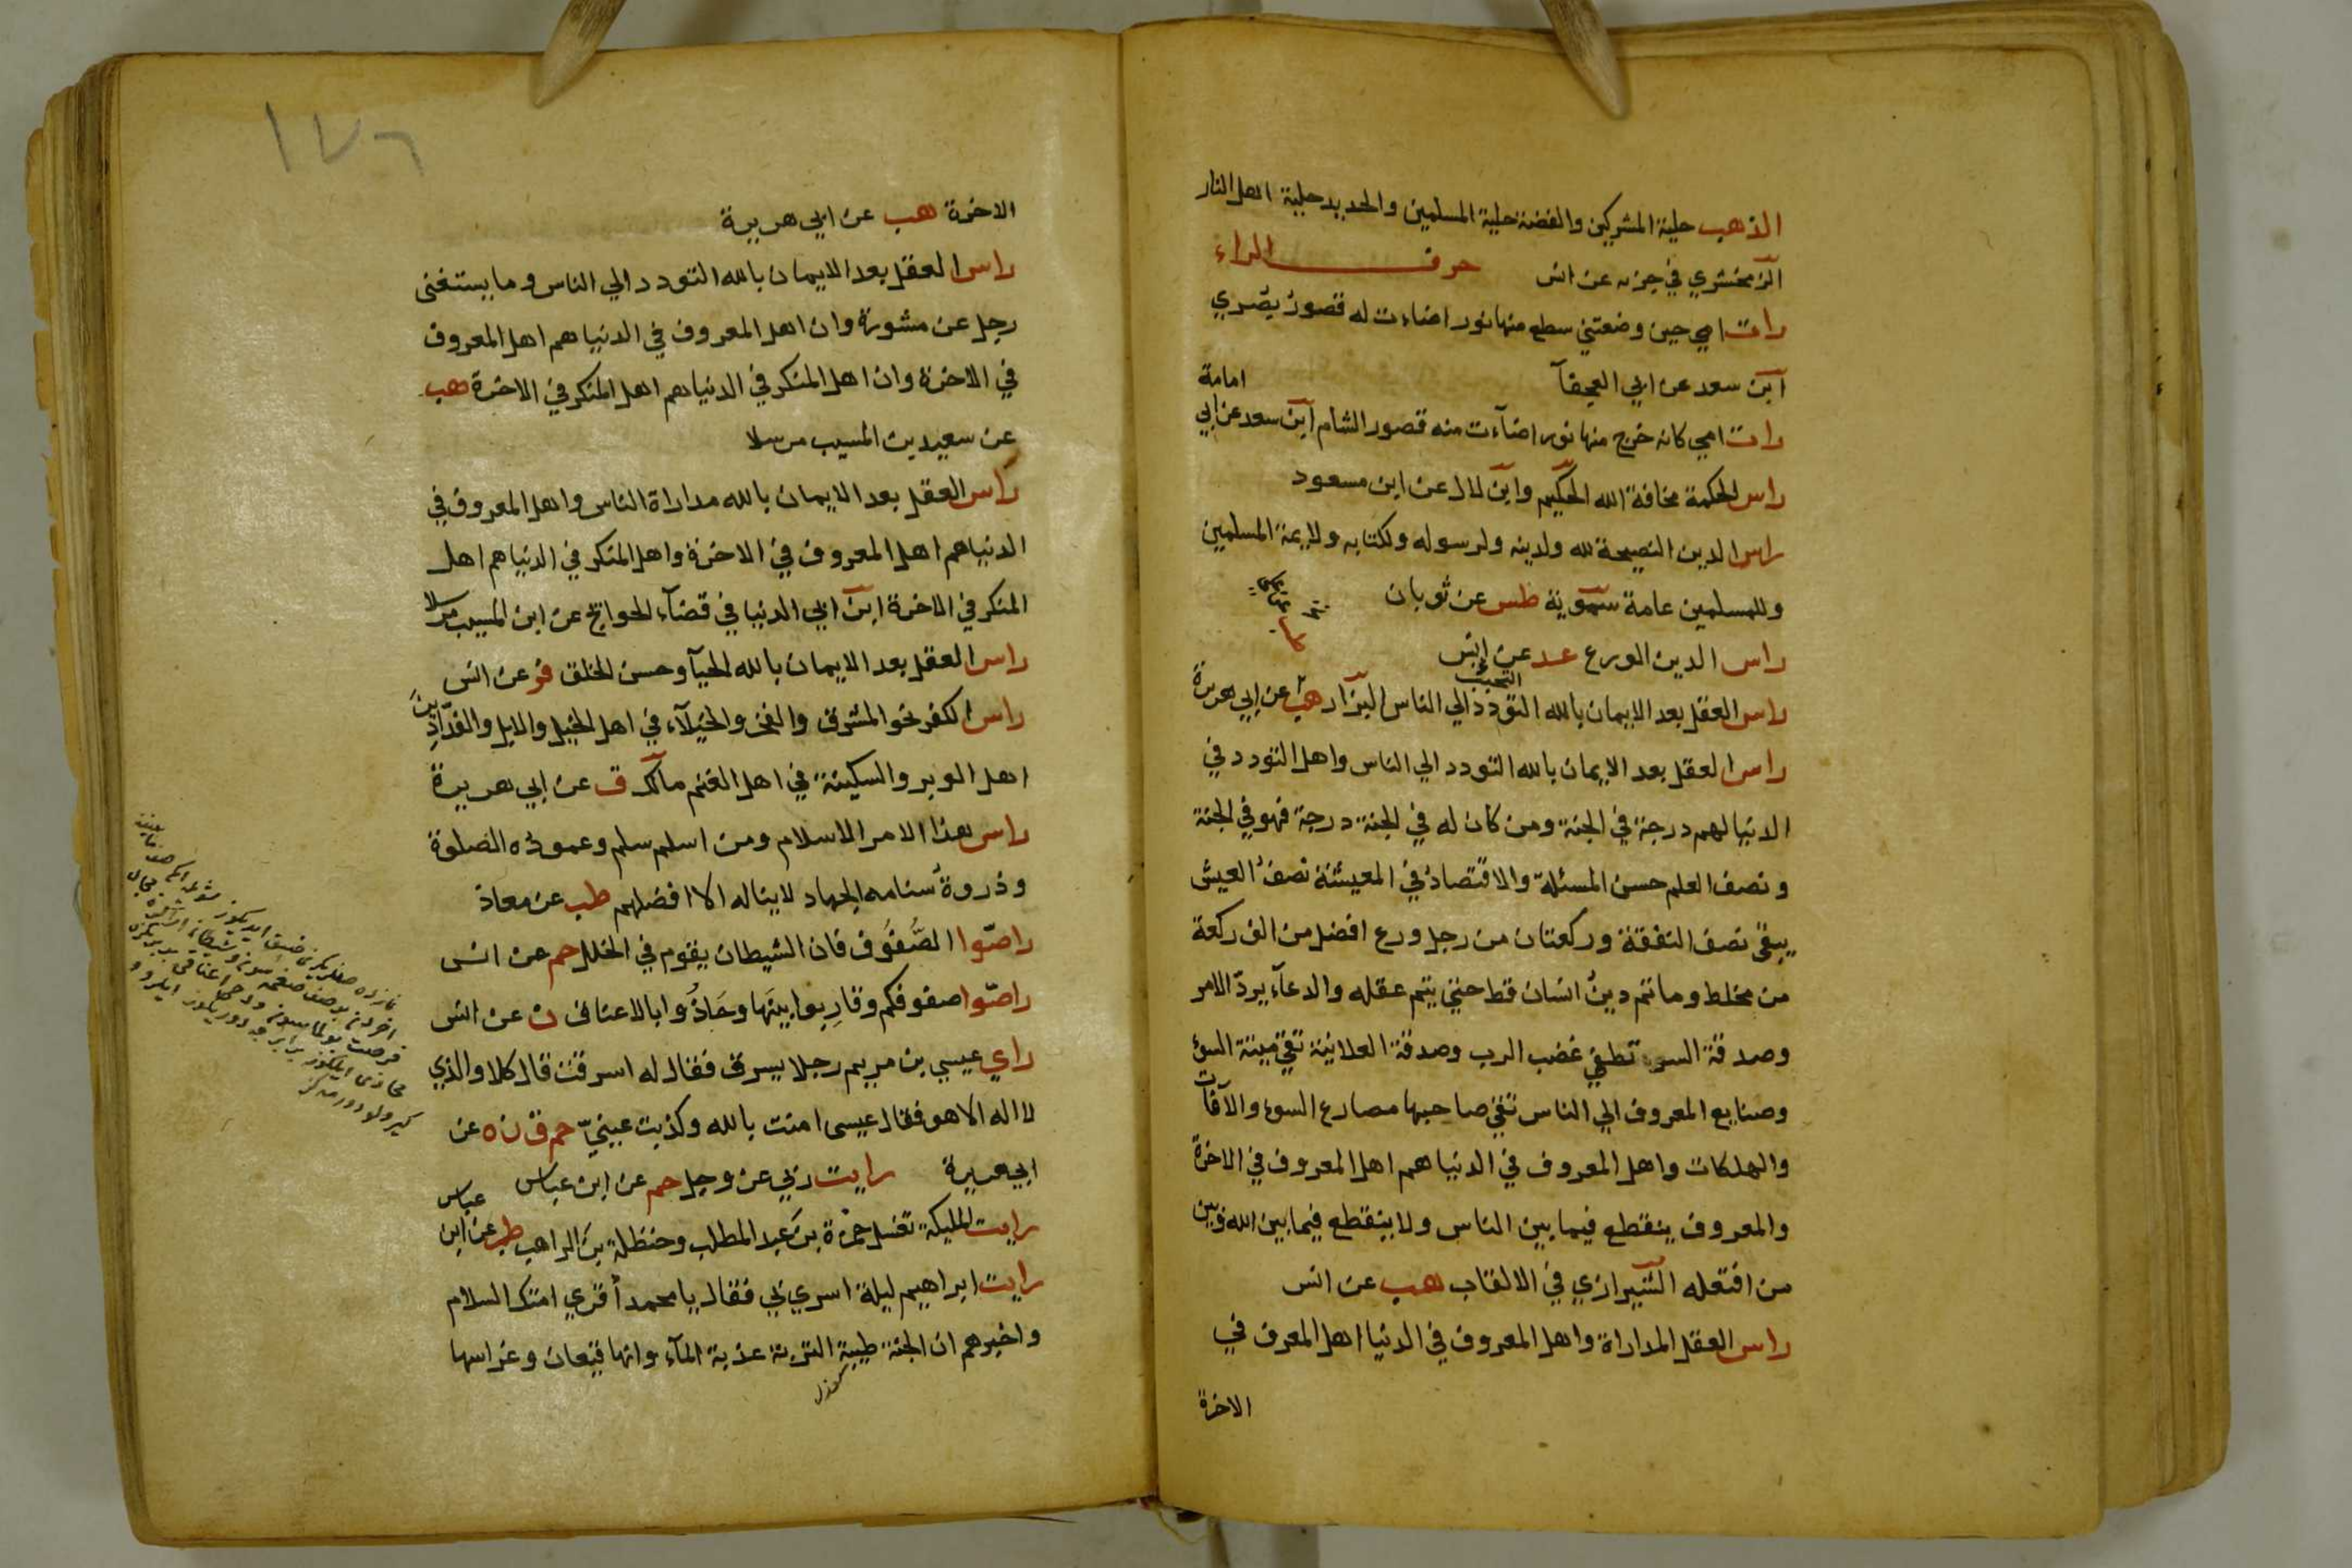 الذهب حلية المشركين والفضة حلية المسلمين والحديد حلية اهل النار
الزمخشري في جزئه عن انس حرف الراء
رات امي حين وضعتني سطع منها نور اضاءت له قصور بصري
ابن سعد عن ابي العجفآ
امامة
رات امي كانه خرج منها نور اضآءت منه قصور الشام ابن سعد عن ابي
راس الحكمة مخافة الله الحكيم وابن لال عن ابن مسعود
راس الدين النصيحة لله ولدينه ولرسوله ولكتابه ولايمة المسلمين
وللمسلمين عامة سموية طس عن ثوبان
راس الدين الورع عد عن انس
التحبب
راس العقل بعد الايمان بالله التودد الي الناس البزار هب عن ابي هريرة
راس العقل بعد الايمان بالله التودد الي الناس واهل التودد في
الدنيا لهم درجة في الجنة ومن كان له في الجنة درجة فهو في الجنة
ونصف العلم حسن المسئلة والاقتصاد في المعيشة نصف العيش
يبقي نصف النفقة وركعتان من رجل ورع افضل من الف ركعة
من مخلط وما تم دين انسان قط حتي يتم عقله والدعآء يردّ الامر
وصدقة السر تطفي غضب الرب وصدقة العلانية تقي ميتة السوء
وصنايع المعروف الي الناس تقي صاحبها مصارع السوء والآفات
والهلكات واهل المعروف في الدنيا هم اهل المعروف في الاخرة
والمعروف ينقطع فيما بين الناس ولا ينقطع فيما بين الله وبين
من افتعله الشيرازي في الالقاب هب عن انس
راس العقل المداراة واهل المعروف في الدنيا اهل المعرف في
الاخرة
١٧٦
الاخرة هب عن ابي هريرة
راس العقل بعد الايمان بالله التودد الي الناس وما يستغنى
رجل عن مشورة وان اهل المعروف في الدنيا هم اهل المعروف
في الاخرة وان اهل المنكر في الدنيا هم اهل المنكر في الاخرة هب
عن سعيد بن المسيب مرسلا
راس العقل بعد الايمان بالله مداراة الناس واهل المعروف في
الدنيا هم اهل المعروف في الاخرة واهل المنكر في الدنيا هم اهل
المنكر في الاخرة ابن ابي الدنيا في قضآء الحوايج عن ابن المسيب مرسلا
راس العقل بعد الايمان بالله الحيآ وحسن الخلق فر عن انس
راس الكفر نحو المشرق والفخر والخيلآء في اهل الخيل والابل والفدّادِينَ
اهل الوبر والسكينة في اهل الغنم مالك ق عن ابي هريرة
راس هذا الامر الاسلام ومن اسلم سلم وعموده الصلوة
وذروة سنامه الجهاد لا يناله الا افضلهم طب عن معاذ
راصّوا الصُّفُوف فان الشيطان يقوم في الخلل حم عن انس
راصّوا صفوفكم وقاربوا بينها وحَاذُوا بالاعناق ن عن انس
راي عيسي بن مريم رجلا يسرق فقال له اسرقت قال كلا والذي
لا اله الا هو فقال عيسى امنت بالله وكذبت عينيّ حم ق ن ه عن
ابي هريرة رايت ربي عز وجل حم عن ابن عباس
عباس
رايت الملئكة تغسل حمزة بن عبد المطلب وحنظلة بن الراهب طب عن ابن
رايت ابراهيم ليلة اسري بي فقال يا محمد أقرئ امتك السلام
واخبرهم ان الجنة طيبة التربة عذبة المآء وانها قيعان وغراسها